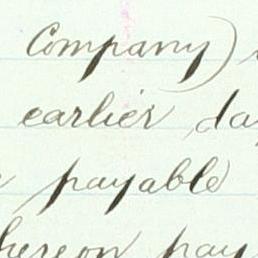 Company)
earlier day
payable
hereon pay